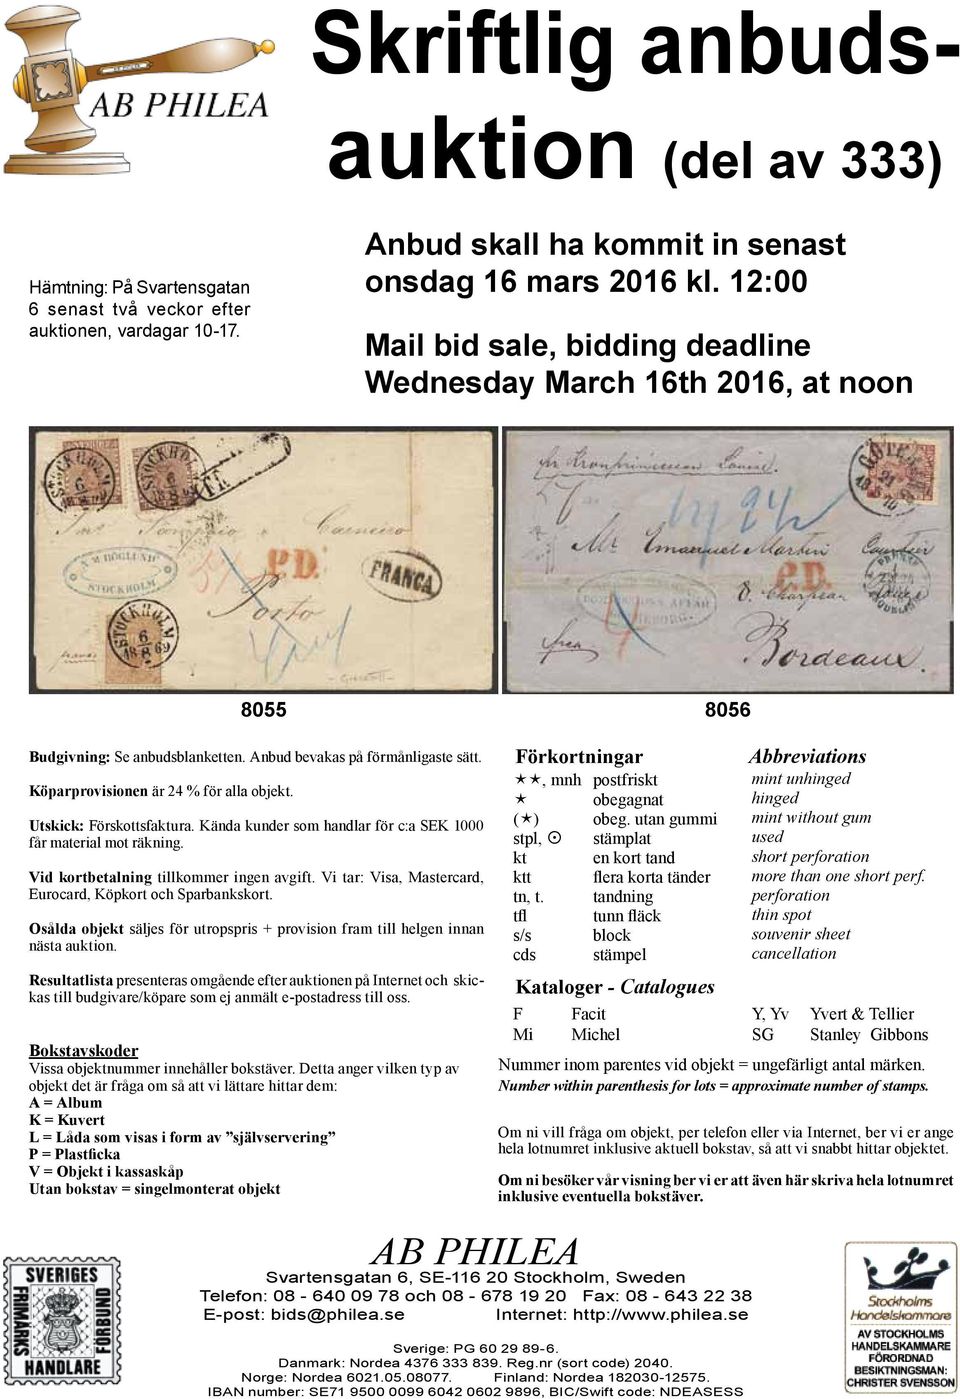 Skriftlig anbuds-
auktion (del av 333)
AB PHILEA
AB PHILEA
Hämtning: På Svartensgatan
6 senast två veckor efter
auktionen, vardagar 10-17.
Anbud skall ha kommit in senast
onsdag 16 mars 2016 kl. 12:00
Mail bid sale, bidding deadline
Wednesday March 16th 2016, at noon
SVERIGE
STOCKHOLM
6
8
STOCKHOLM
6
8
FR.
Porto
N M HÖGLUND
STOCKHOLM
P.D.
FRANCA
STOCKHOLM
6
18 8 69
pr Kronprinsessan Louise.
Mr. Emanuel Martin
P.D.
Bordeaux
8055
8056
Budgivning: Se anbudsblanketten. Anbud bevakas på förmånligaste sätt.
Köparprovisionen är 24 % för alla objekt.
Utskick: Förskottsfaktura. Kända kunder som handlar för c:a SEK 1000
får material mot räkning.
Vid kortbetalning tillkommer ingen avgift. Vi tar: Visa, Mastercard,
Eurocard, Köpkort och Sparbankskort.
Osålda objekt säljes för utropspris + provision fram till helgen innan
nästa auktion.
Resultatlista presenteras omgående efter auktionen på Internet och skic-
kas till budgivare/köpare som ej anmält e-postadress till oss.
Bokstavskoder
Vissa objektnummer innehåller bokstäver. Detta anger vilken typ av
objekt det är fråga om så att vi lättare hittar dem:
A = Album
K = Kuvert
L = Låda som visas i form av ”självservering”
P = Plastficka
V = Objekt i kassaskåp
Utan bokstav = singelmonterat objekt
Förkortningar Abbreviations
★★, mnh postfriskt mint unhinged
★ obegagnat hinged
(★) obeg. utan gummi mint without gum
stpl, ⊙ stämplat used
kt en kort tand short perforation
ktt flera korta tänder more than one short perf.
tn, t. tandning perforation
tfl tunn fläck thin spot
s/s block souvenir sheet
cds stämpel cancellation
Kataloger - Catalogues
F Facit Y, Yv Yvert & Tellier
Mi Michel SG Stanley Gibbons
Nummer inom parentes vid objekt = ungefärligt antal märken.
Number within parenthesis for lots = approximate number of stamps.
Om ni vill fråga om objekt, per telefon eller via Internet, ber vi er ange
hela lotnumret inklusive aktuell bokstav, så att vi snabbt hittar objektet.
Om ni besöker vår visning ber vi er att även här skriva hela lotnumret
inklusive eventuella bokstäver.
AB PHILEA
Svartensgatan 6, SE-116 20 Stockholm, Sweden
Telefon: 08 - 640 09 78 och 08 - 678 19 20 Fax: 08 - 643 22 38
E-post: bids@philea.se Internet: http://www.philea.se
Sverige: PG 60 29 89-6.
Danmark: Nordea 4376 333 839. Reg.nr (sort code) 2040.
Norge: Nordea 6021.05.08077. Finland: Nordea 182030-12575.
IBAN number: SE71 9500 0099 6042 0602 9896, BIC/Swift code: NDEASESS
SVERIGES
FRIMÄRKS
FÖRBUND
HANDLARE
Stockholms
Handelskammare
AV STOCKHOLMS
HANDELSKAMMARE
FÖRORDNAD
BESIKTNINGSMAN:
CHRISTER SVENSSON